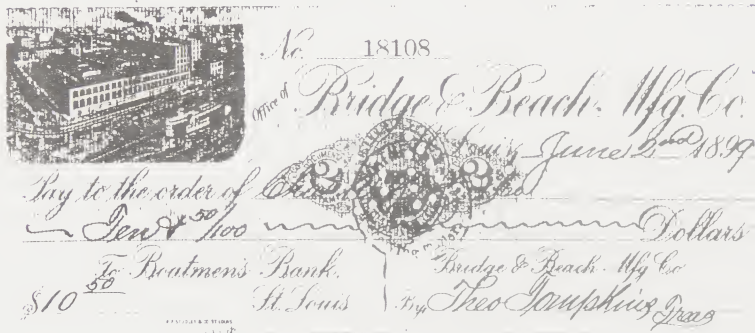 No. 18108
Office of Bridge & Beach Mfg. Co.
Louis, June 2nd 1899
Pay to the order of
Ten & 50/100 Dollars
To Boatmen's Bank, Bridge & Beach Mfg Co
$10 50 St. Louis By Theo Tompkins Treas